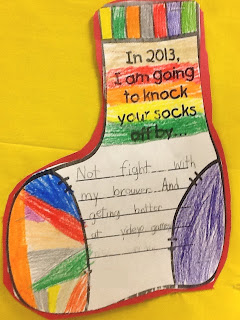 In 2013,
I am going
to knock
your socks
off by...
Not fight with
my brouwer And
geting better
at video games